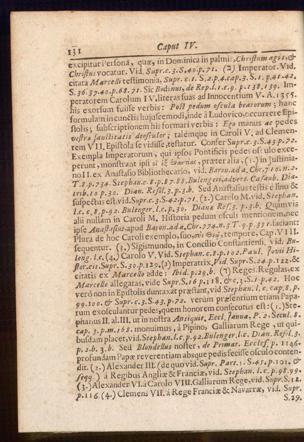 131 Caput IV.
excipitur persona, quæ, in Dominica in palmis Christum agit: &
Christus vocatur. Vid. Supr. c. 3. S. 40. p. 71. (2) Imperator. Vid.
citata Marcelli testimonia, Supr. c. 1. S. 2. p. 4. cap. 3. S. 1. p. 41. 42.
S. 36. 37. 40. p. 68. 71. Sic Bodinus, de Rep. l. 1. c. 9. p. 138. 139. Im-
peratorem Carolum IV, literas suas ad Innocentium V. A. 1355.
his exorsum fuisse verbis: Post pedum oscula beatorum; hanc
formulam in cunctis hujuscemodi, inde à Ludovico, occurrere Epi-
stolis; subscriptionem his formari verbis: Ego manus ac pedes
vestræ sanctitatis deosculor; talémque in Caroli V, ad Clemen-
tem VII, Epistola se vidisse, testatur. Confer Supr. c. 3. S. 43. p. 72.
Exempla Imperatorum, qui ipsos Pontificis pedes osculo exce-
perunt, monstrat ipsi præter alia, (1.) in Justinia-
no II. ex Anastasio Bibliothecario, vid. Baron. ad a. Chr. 710. n. 2.
T. 8. p. 734. Stephan. c. 8. p. 87. 88. Bulenger.
trib. 10. p. 30. Dian. Resp. 3. p. 3. b. Sed Anastasius testis est sin
suspectus est. vid. Supr. c. 3. S. 42. p. 71. (2.) Carolo M. vid. Stephan.
l. c. c, 8. p. 92. Bulenger. l. c. p. 30. Diana Resp. 3. p. 3. b. Quamvis
alii nullam in Caroli M, Historia pedum osculi mentionem, nec
ipse Anastasius apud Baron. ad a, Chr. 774. n. 3. T. 9. p. 11. faciant:
Plura de hoc Caroli exemplo, suo in tempore, Cap. VIII.
sequentur. (3.) Sigismundo, in Concilio Constantiensi, vid. Bu-
leng. l. c. (4.) Carolo V. Vid. Stephan. c. 8. p. 102. Paul. Jovii Hi-
stor. cit. Supr. S. 30. p. 129. (5) Imperatrix, Vid. Supr. S. 24. p. 122. &
citatis ex Marcello adde: Ibid. p. 29. b. (7) Reges. Regulas, ex
Marcello allegatas, vide Supr. S. 16 p. 118, & c. 3. S. 1. p. 42. Hoc
verò non in Epistolis duntaxat præstant, vid Stephan. l. c. cap. 8. p.
99. 100. & Supr. c. 3. S. 43. p. 72. verùm præsentium etiam Papa-
rum exosculantur pedes; quem honorem confectum est: (1.) Ste-
phanus II. al. III. ut in nostra Antiquit. Eccl. Januæ. P. 2. Secul. 8.
cap. 3. p. m. 161. monuimus, à Pipino, Galliarum Rege, ut qui-
busdam placet, vid. Stephan. l. c. p. 92. Bulenger. l. c. Dian. Resp. 3.
p. 3. b. 3. b. Sed Blondellus noster, de Primat. Eccles. p. 1146.
profundam Papæ reverentiam absque pedis fecisse osculo conten-
dit. (2.) Alexander III. (de quo vid. Supr. Part. 1. S. 45. p. 101. &
seqq.) à Regibus Angliæ & Franciæ, vid. Stephan. l. c. p. 98. 99.
(3.) Alexander VI. à Carolo VIII. Galliarum Rege, vid. Supr. S. 12.
p. 116. (4.) Clemens VII. à Rege Franciæ & Navarræ, vid. Supr.
S. 29.